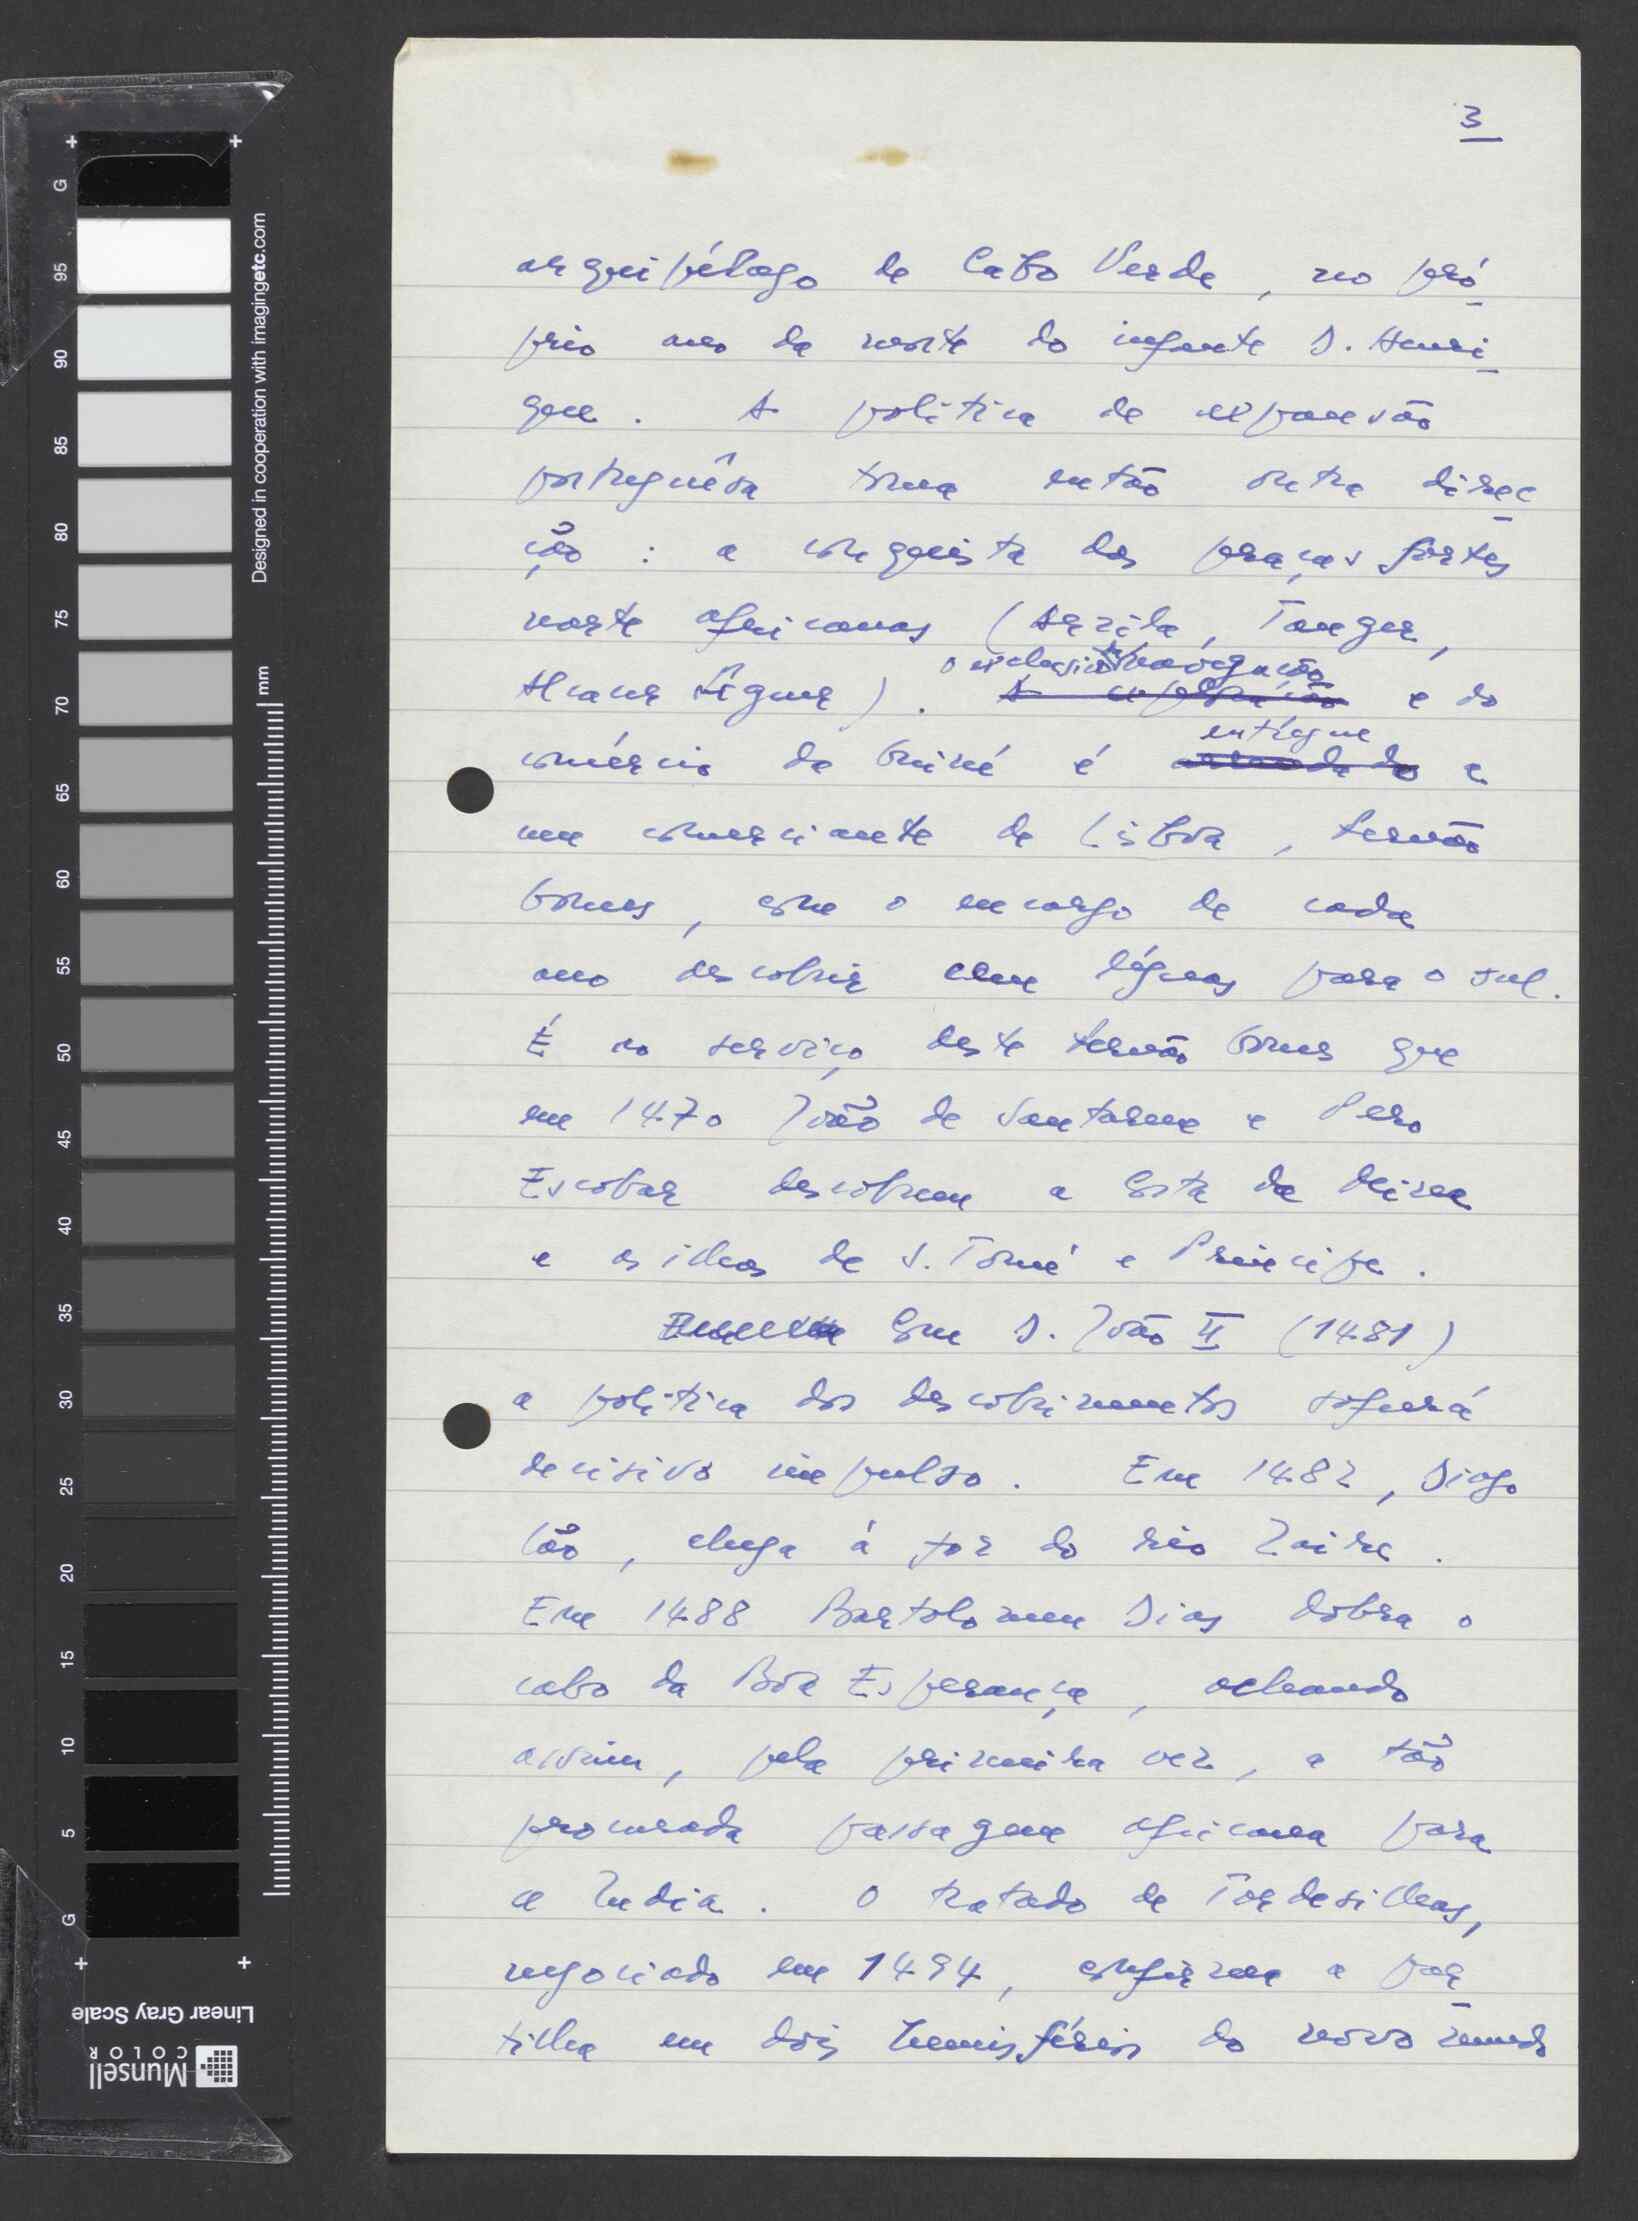 3
arquipélago de Cabo Verde, no pró-
prio ano da morte do infante D. Henri-
que. A política de expansão
portuguêsa toma então outra direc-
ção : a conquista das praças fortes
norte africanas (Arzila, Tanger,
Alcacer Séguer). o exclusivo da navegação e do
A exploração
entregue
comércio da Guiné é arrendado a
um comerciante de Lisboa, Fernão
Gomes, com o encargo de cada
ano descobrir cem léguas para o sul.
É ao serviço deste Fernão Gomes que
em 1470 João de Santarem e Pero
Escobar descobrem a Costa da Mina
e as ilhas de S. Tomé e Principe.
Com D. João II (1481)
a política dos descobrimentos sofrerá
decisivo impulso. Em 1482, Diogo
Cão, chega à foz do rio Zaire.
Em 1488 Bartolomeu Dias dobra o
cabo da Boa Esperança, achando
assim, pela primeira vez, a tão
procurada passagem africana para
a India. O tratado de Tordesilhas,
negociado em 1494, confirma a par-
tilha em dois hemisférios do novo mundo
Designed in cooperation with imagingetc.com
mm
G
95
90
85
80
75
70
65
60
55
50
45
40
35
30
25
20
15
10
5
G
Linear Gray Scale
Munsell
COLOR